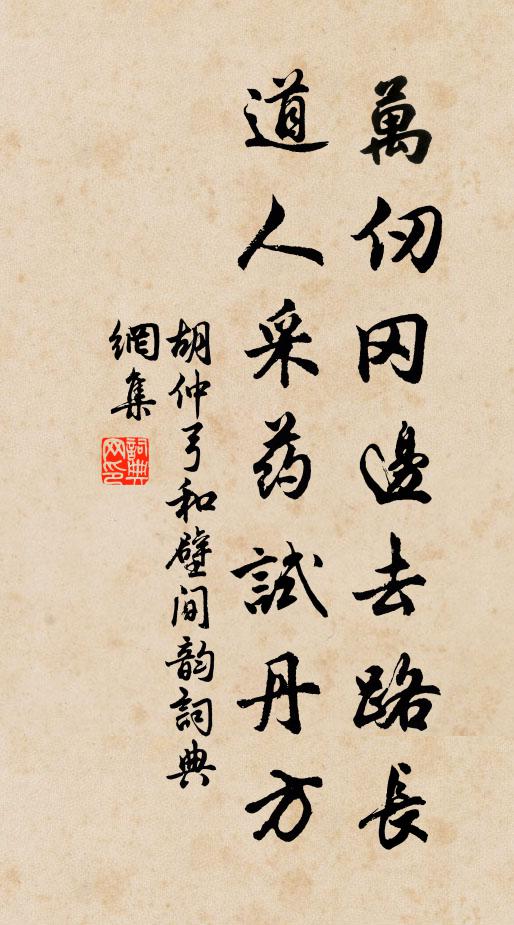 萬仞冈邊去路長
道人采药試丹方
胡仲弓和壁间韵詞典
網集
詞典網印